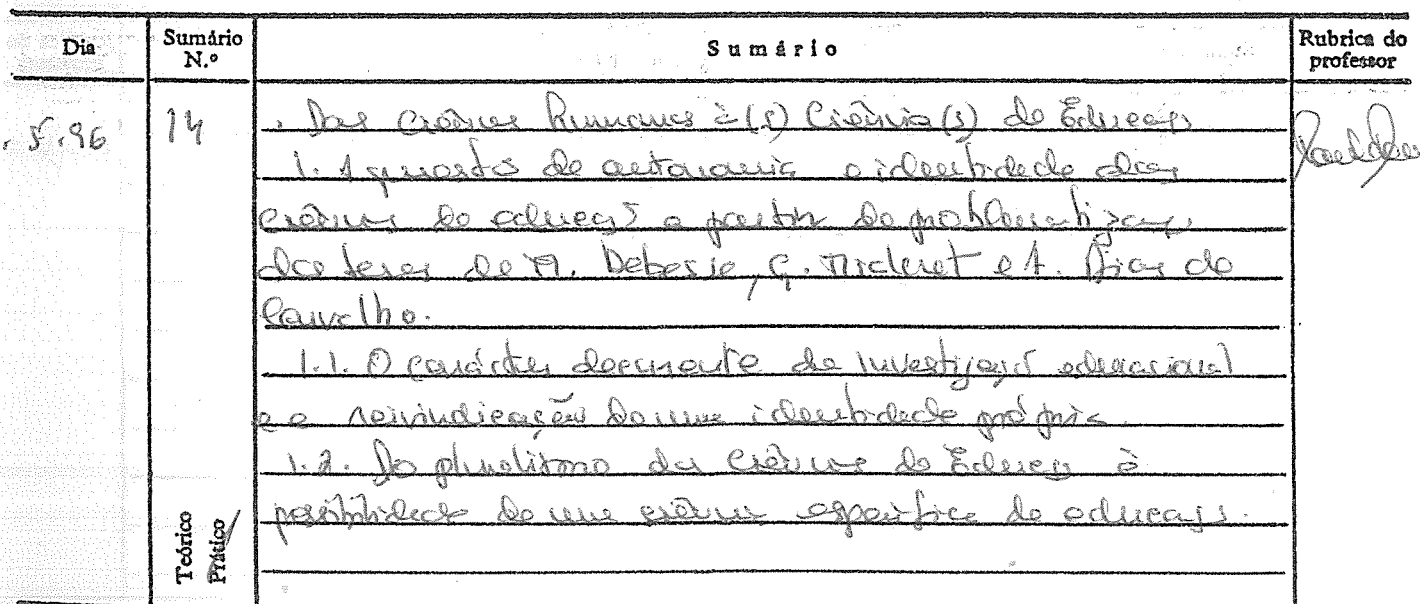 Dia Sumário N.º Sumário Rubrica do professor
. 5.96 14 . Das Ciências Humanas à(s) Ciência(s) da Educação
1. A questão da autonomia e identidade das
ciências da educação a partir da problematização
das teses de M. Debesse, G. Mialaret e A. Dias de
Carvalho.
1.1. O carácter decorrente da investigação educacional
e a reivindicação de uma identidade própria.
1.2. Do pluralismo das Ciências da Educação à
possibilidade de uma ciência específica da educação.
Teórico
Prático